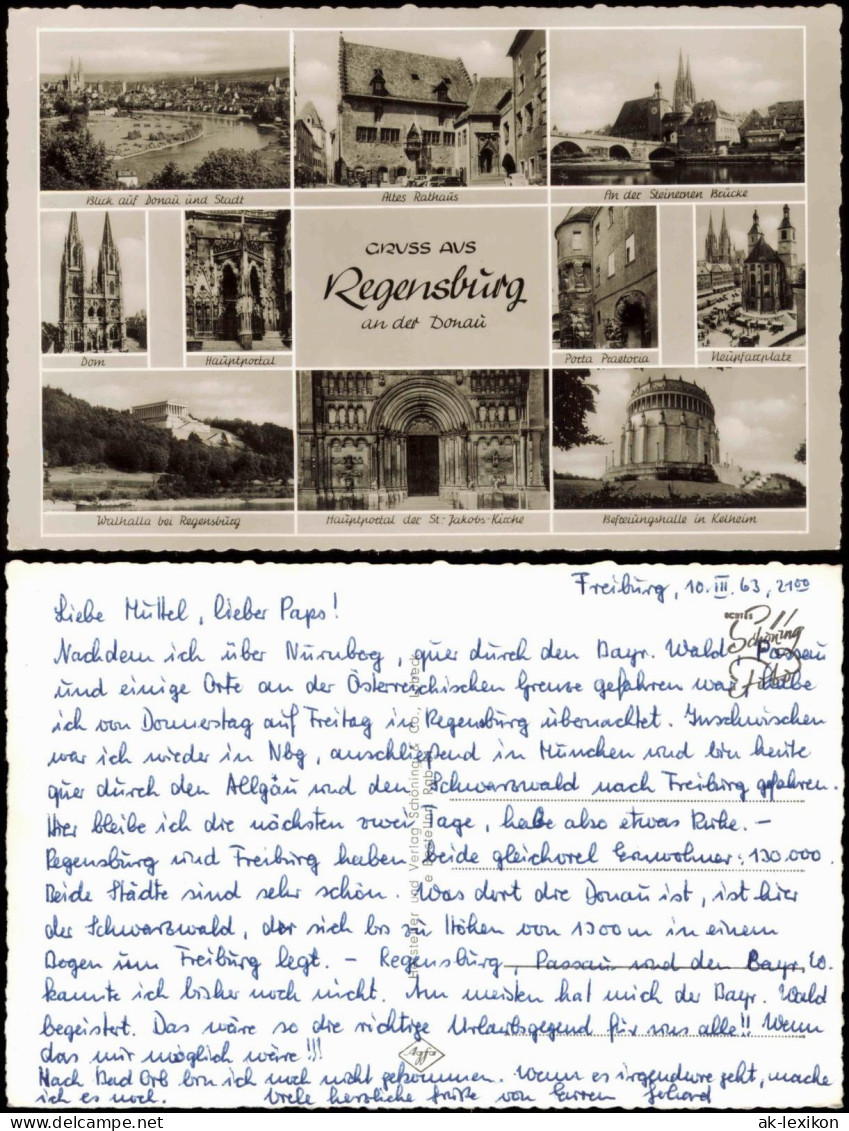 Blick auf Donau und Stadt
Altes Rathaus
An der Steinernen Brücke
GRUSS AUS
Regensburg
an der Donau
Dom
Hauptportal
Porta Praetoria
Neupfarrplatz
Walhalla bei Regensburg
Hauptportal der St.-Jakobs-Kirche
Befreiungshalle in Kelheim
Freiburg, 10.III.63, 21⁰⁰
Liebe Muttel, lieber Paps!
Nachdem ich über Nürnbg, quer durch den Bayr. Wald, Passau
und einige Orte an der Österreichischen Grenze gefahren war, habe
ich von Donnerstag auf Freitag in Regensburg übernachtet. Inzwischen
war ich wieder in Nbg, anschließend in München und bin heute
quer durch den Allgäu und den Schwarzwald nach Freiburg gefahren.
Hier bleibe ich die nächsten zwei Tage, habe also etwas Ruhe. –
Regensburg und Freiburg haben beide gleichviel Einwohner: 130.000.
Beide Städte sind sehr schön. Was dort die Donau ist, ist hier
der Schwarzwald, der sich bis zu Höhen von 1300 m in einem
Bogen um Freiburg legt. – Regensburg, Passau und den Bayr. W.
kannte ich bisher noch nicht. Am meisten hat mich der Bayr. Wald
begeistert. Das wäre so die richtige Urlaubsgegend für uns alle!! Wenn
das mir möglich wäre!!!
Nach Bad Orb bin ich noch nicht gekommen. Wenn es irgendwie geht, mache
ich es noch. Viele herzliche Grüße von Eurem Gehard
ECHTES
Schöning
Foto
Hersteller und Verlag Schöning & Co., Lübeck
Agfa
ak-lexikon